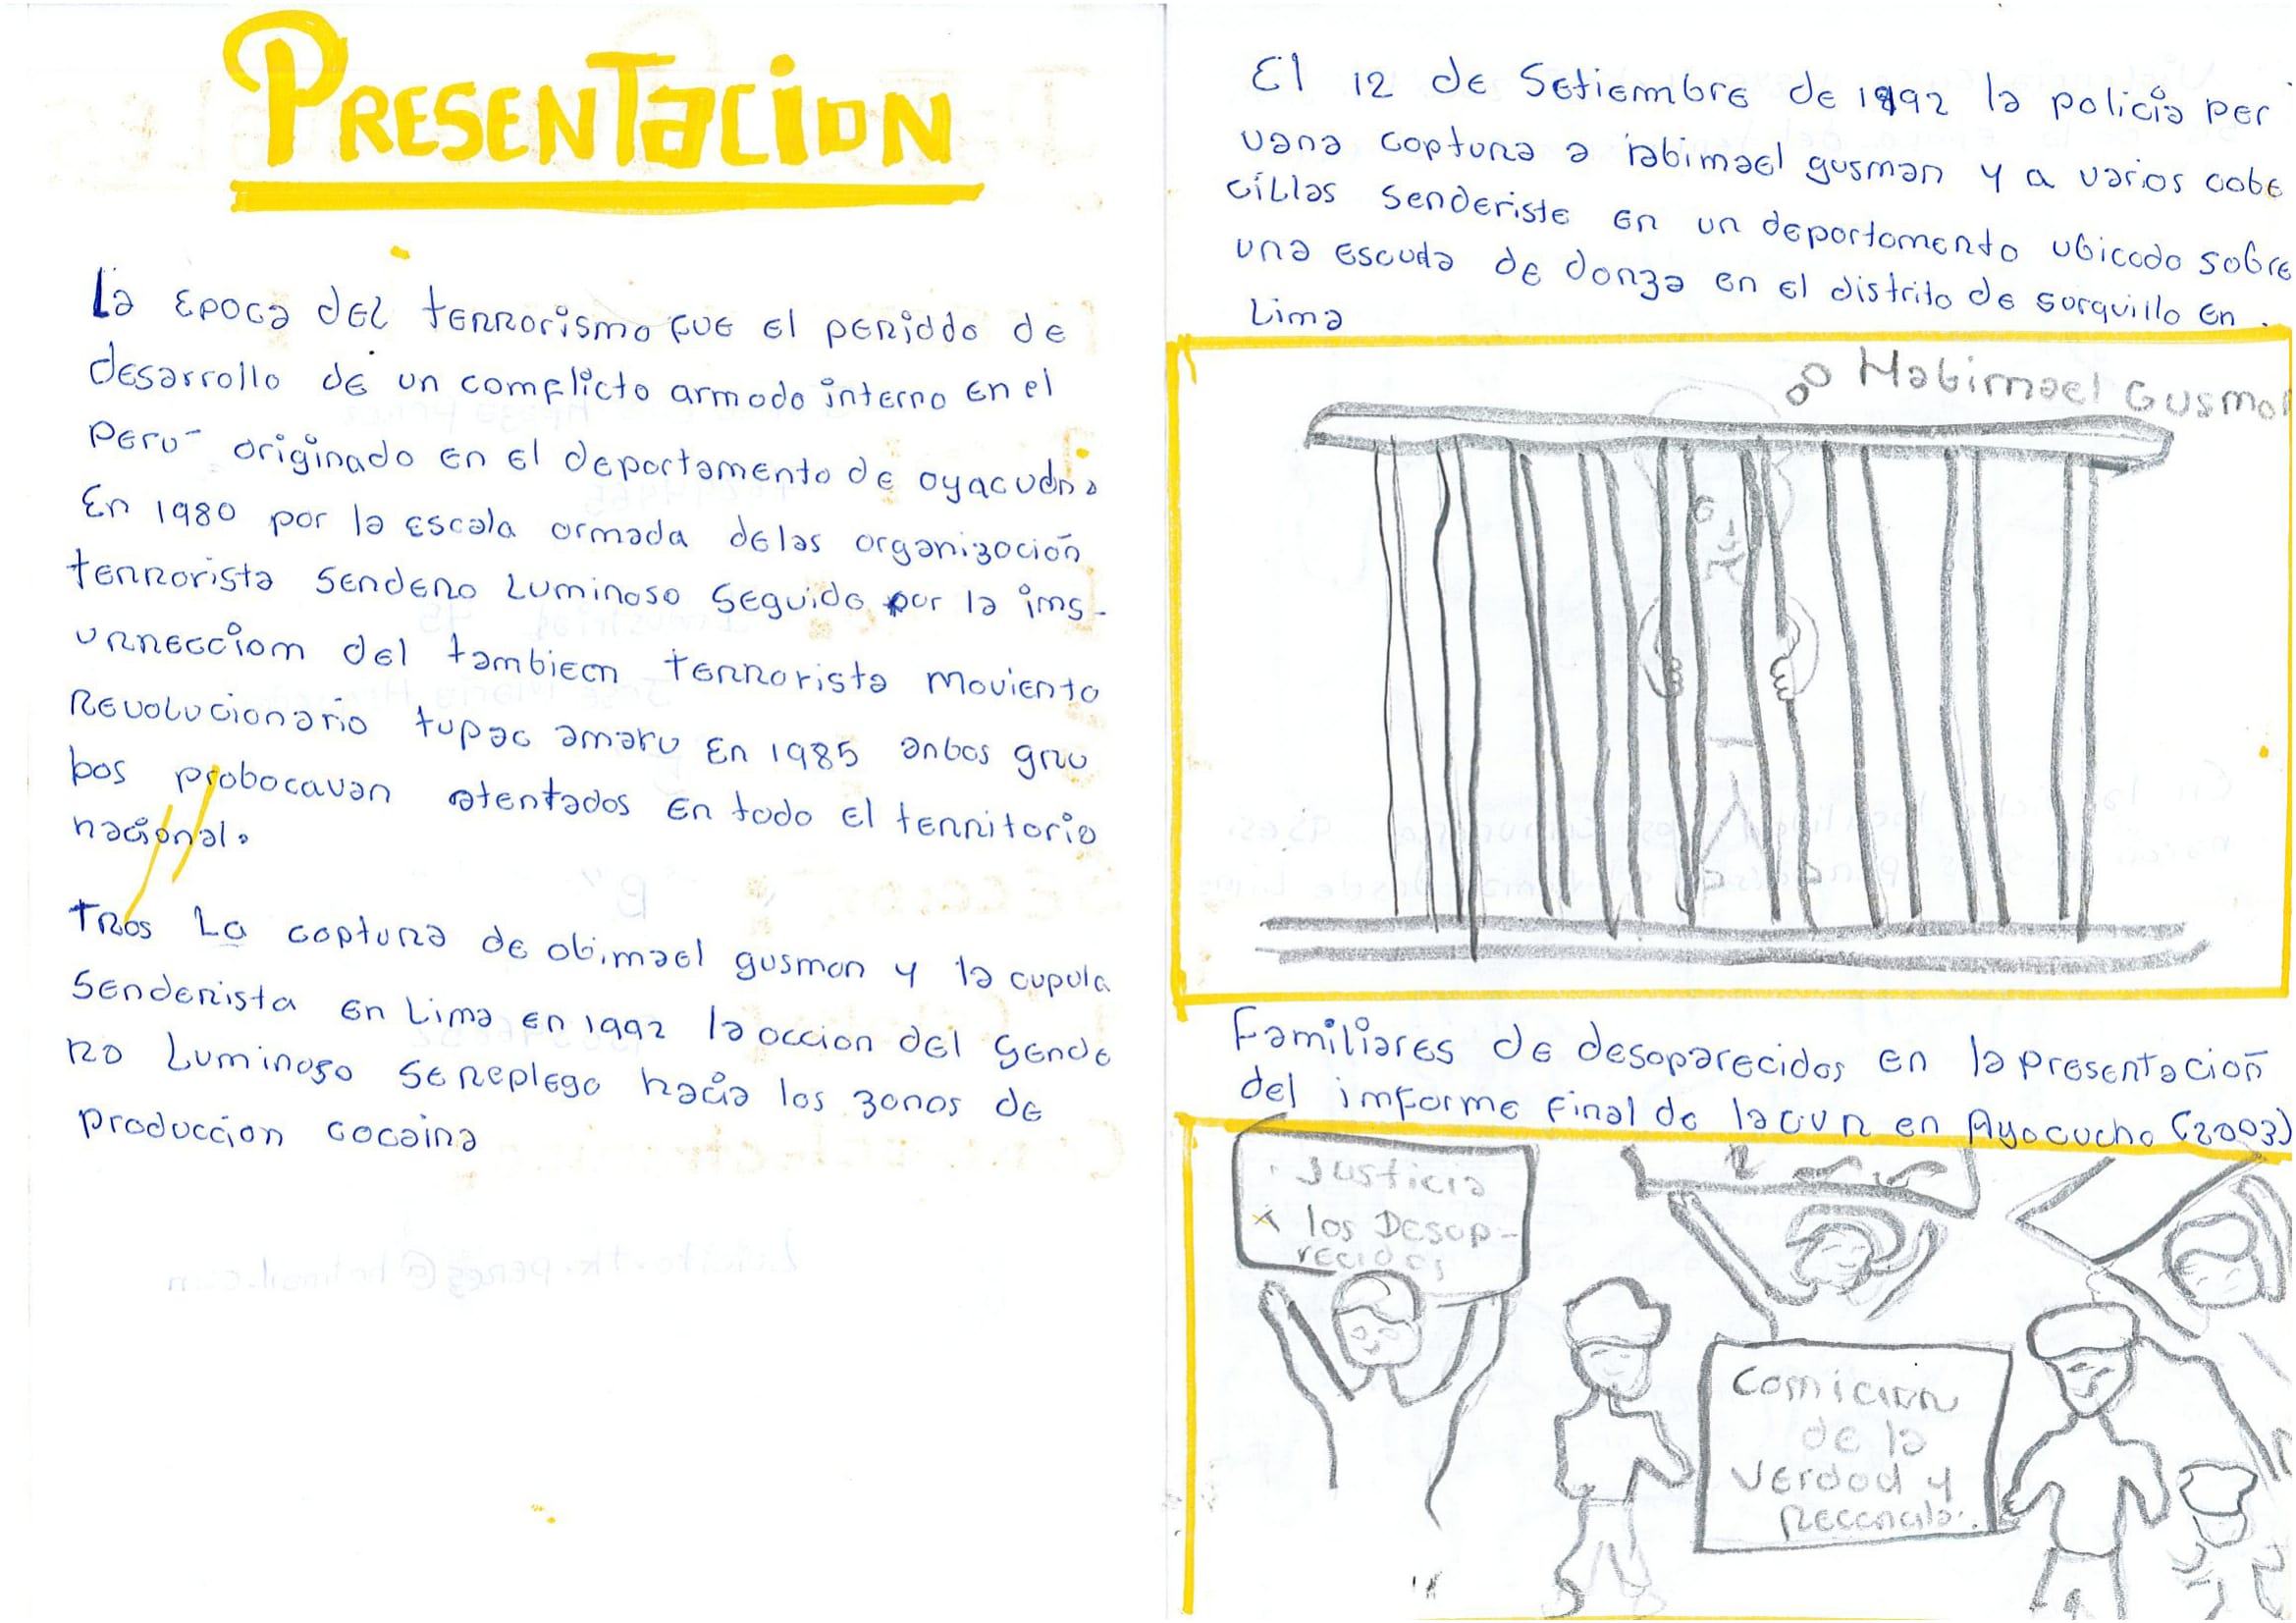 PRESENTACION
La epoca del terrorismo fue el periodo de
desarrollo de un comflicto armado interno en el
Peru originado en el departamento de
En 1980 por la escala armada delas organización
terrorista sendero Luminoso seguido por la ims-
urrecciom del tambiem terrorista moviento
Revolucionario tupac amaru En 1985 anbos gru
pos probocavan atentados en todo el territorio
nacional.
Tras La captura de abimael gusman y la cupula
senderista en Lima en 1992 la accion del sende
ro Luminoso se replego hacia las zonas de
produccion cocaina
El 12 de Setiembre de 1992 la policia per
uana captura a gusman y a varios cabe
cillas senderiste en un departamento ubicado sobre
una escuela de danza en el distrito de surquillo en
Lima
Habimael Gusman
Familiares de desaparecidos en la presentación
del imforme Final de la CVR en Ayacucho (2003)
Justicia
x los Desap-
recidos
Comicion
de la
Verdad y
Reconcilo.